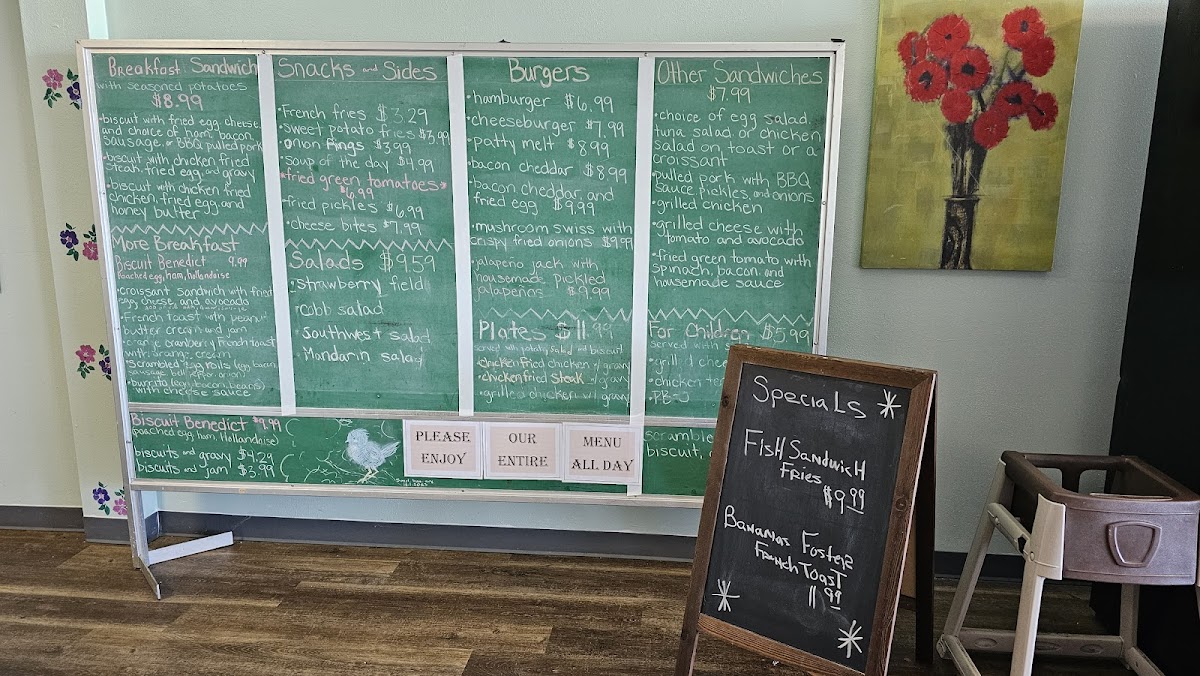 Breakfast Sandwich
with seasoned potatoes
$8.99
• biscuit with fried egg cheese
and choice of ham, bacon,
sausage, or BBQ pulled pork
• biscuit with chicken fried
steak, fried egg, and gravy
• biscuit with chicken fried
chicken, fried egg and
honey butter
More Breakfast
Biscuit Benedict 9.99
poached egg, ham, hollandaise
• croissant sandwich with fried
egg, cheese, and avocado
• French toast with peanut
butter cream and jam
orange cranberry French toast
with orange cream
• scrambled egg rolls (egg, bacon,
sausage, bell pepper, onion)
• burrito (egg, bacon, beans)
with cheese sauce
Biscuit Benedict $9.99
(poached egg, ham, Hollandaise)
biscuits and gravy $4.29
biscuits and jam $3.99
Snacks and Sides
• French fries $3.29
• sweet potato fries $3.99
• onion rings $3.99
• soup of the day $4.99
*fried green tomatoes*
$6.99
• fried pickles $6.99
• cheese bites $7.99
Salads $9.59
• strawberry field
• cobb salad
• southwest salad
• Mandarin salad
Burgers
• hamburger $6.99
• cheeseburger $7.99
• patty melt $8.99
• bacon cheddar $8.99
• bacon cheddar, and
fried egg $9.99
• mushroom swiss with
crispy fried onions $9.99
• jalapeño jack with
housemade pickled
jalapeños $9.99
Plates $11.99
served with potato salad and biscuit
• chicken fried chicken w/ gravy
• chicken fried steak w/ gravy
• grilled chicken w/ gravy
Other Sandwiches
$7.99
• choice of egg salad,
tuna salad or chicken
salad on toast or a
croissant
• pulled pork with BBQ
sauce, pickles, and onions
• grilled chicken
• grilled cheese with
tomato and avocado
• fried green tomato with
spinach, bacon, and
housemade sauce
For Children $5.99
served with
• grill'd
• chicken
• PB-J
scramble
biscuit,
PLEASE
ENJOY
OUR
ENTIRE
MENU
ALL DAY
Specials
Fish Sandwich
Fries
$9.99
Bananas Foster
French Toast
11.99